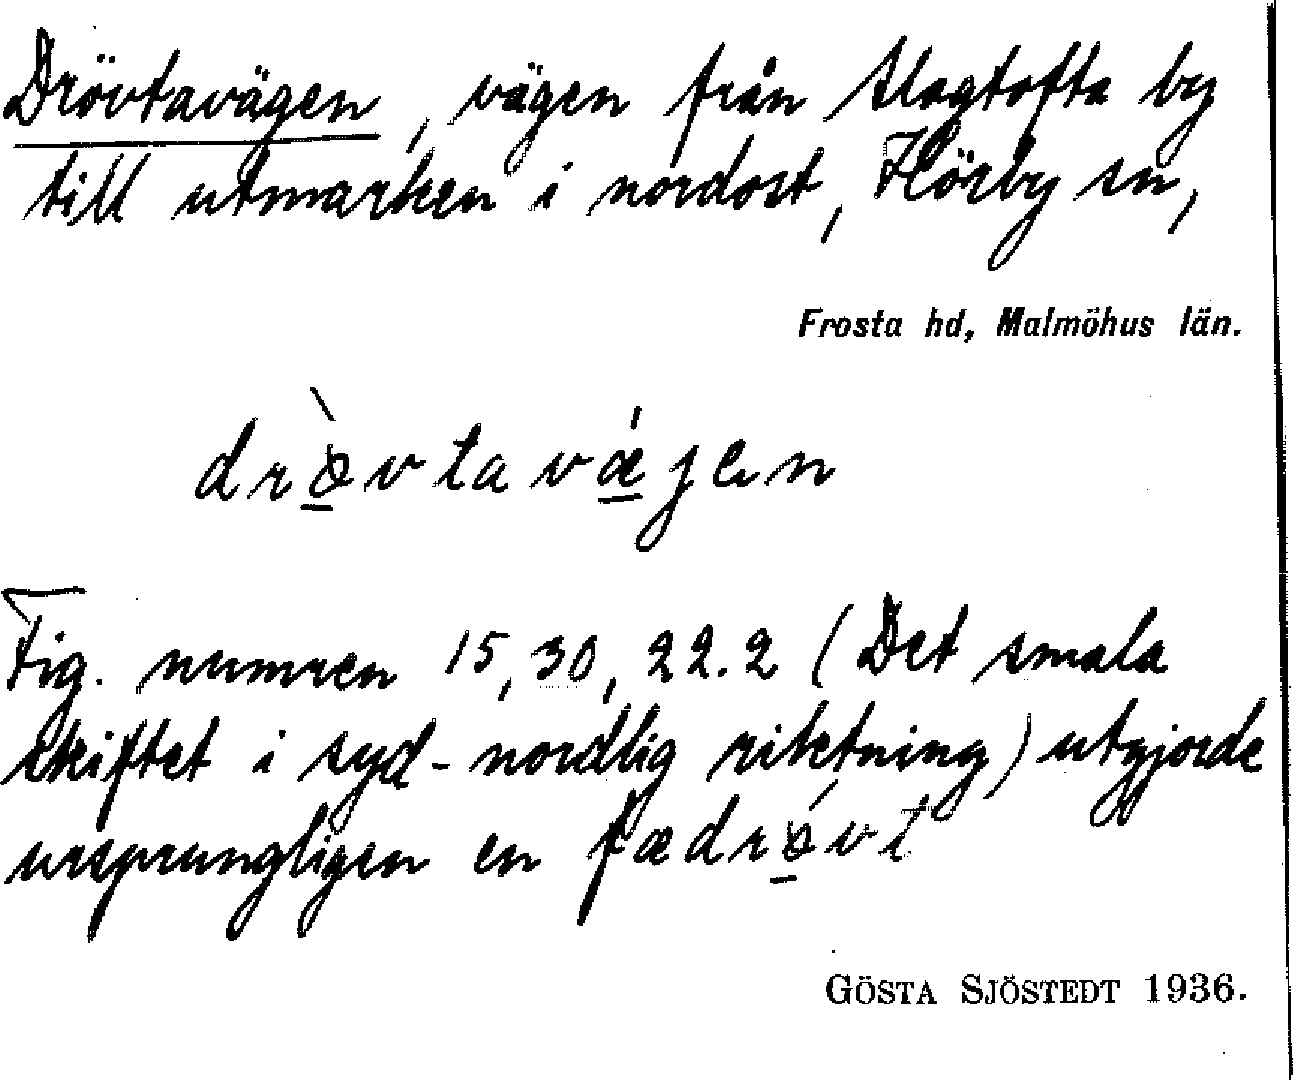 Drövtavägen, vägen från Slagtofta by
till utmarken i nordost, Hörby sn,
Frosta hd, Malmöhus län.
drø̀vtavǽjen
Fig. numren 15, 30, 22.2 (Det smala
skiftet i syd-nordlig riktning) utgjorde
ursprungligen en fædrǿvt
GÖSTA SJÖSTEDT 1936.